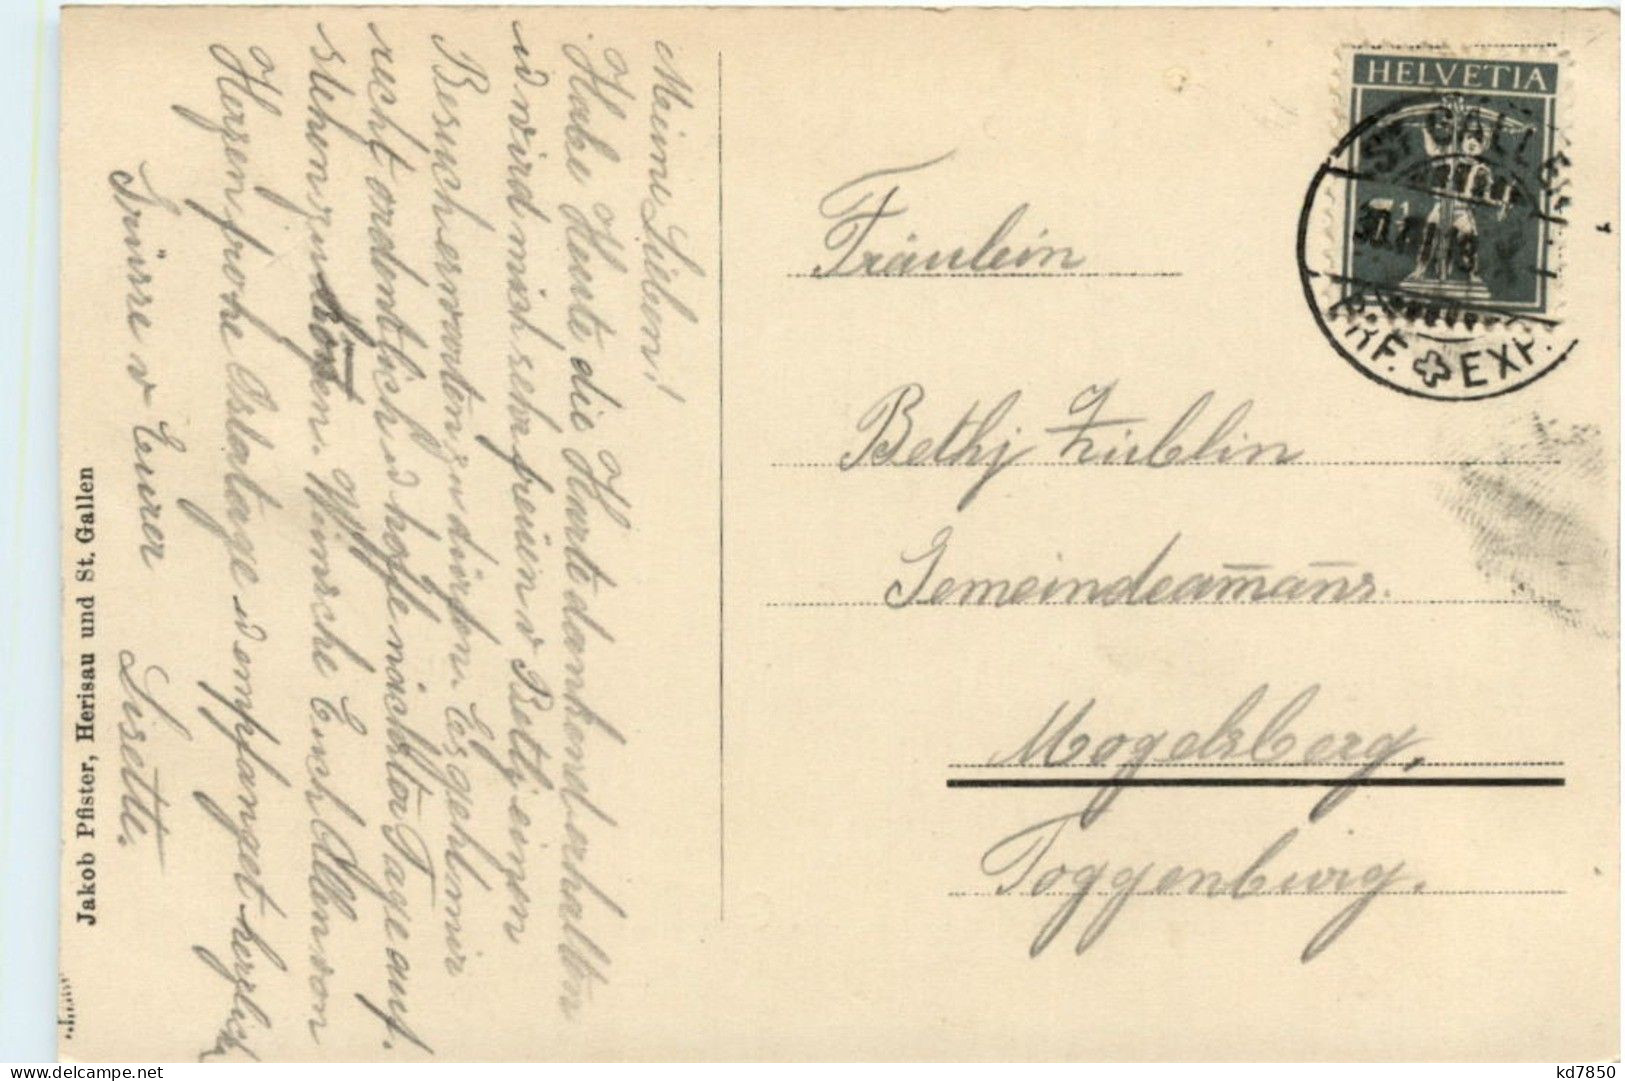 Meine Lieben!
Habe Heute die Karte dankend erhalten
u wird mich sehr freuen v Bethj einen
Besuch erwarten zu dürfen. Es geht mir
recht ordentlich u hoffe nächster Tage auf-
stehen zu können. Wünsche Euch Allen von
Herzen frohe Ostatage u empfanget herzlich
Grüsse v Eurer Lisette.
Jakob Pfister, Herisau und St. Gallen
HELVETIA
ST. GALLEN
BRF. EXP.
Fräulein
Bethj Züblin
Gemeindeam̄ans.
Mogelsberg,
Toggenburg.
kd7850